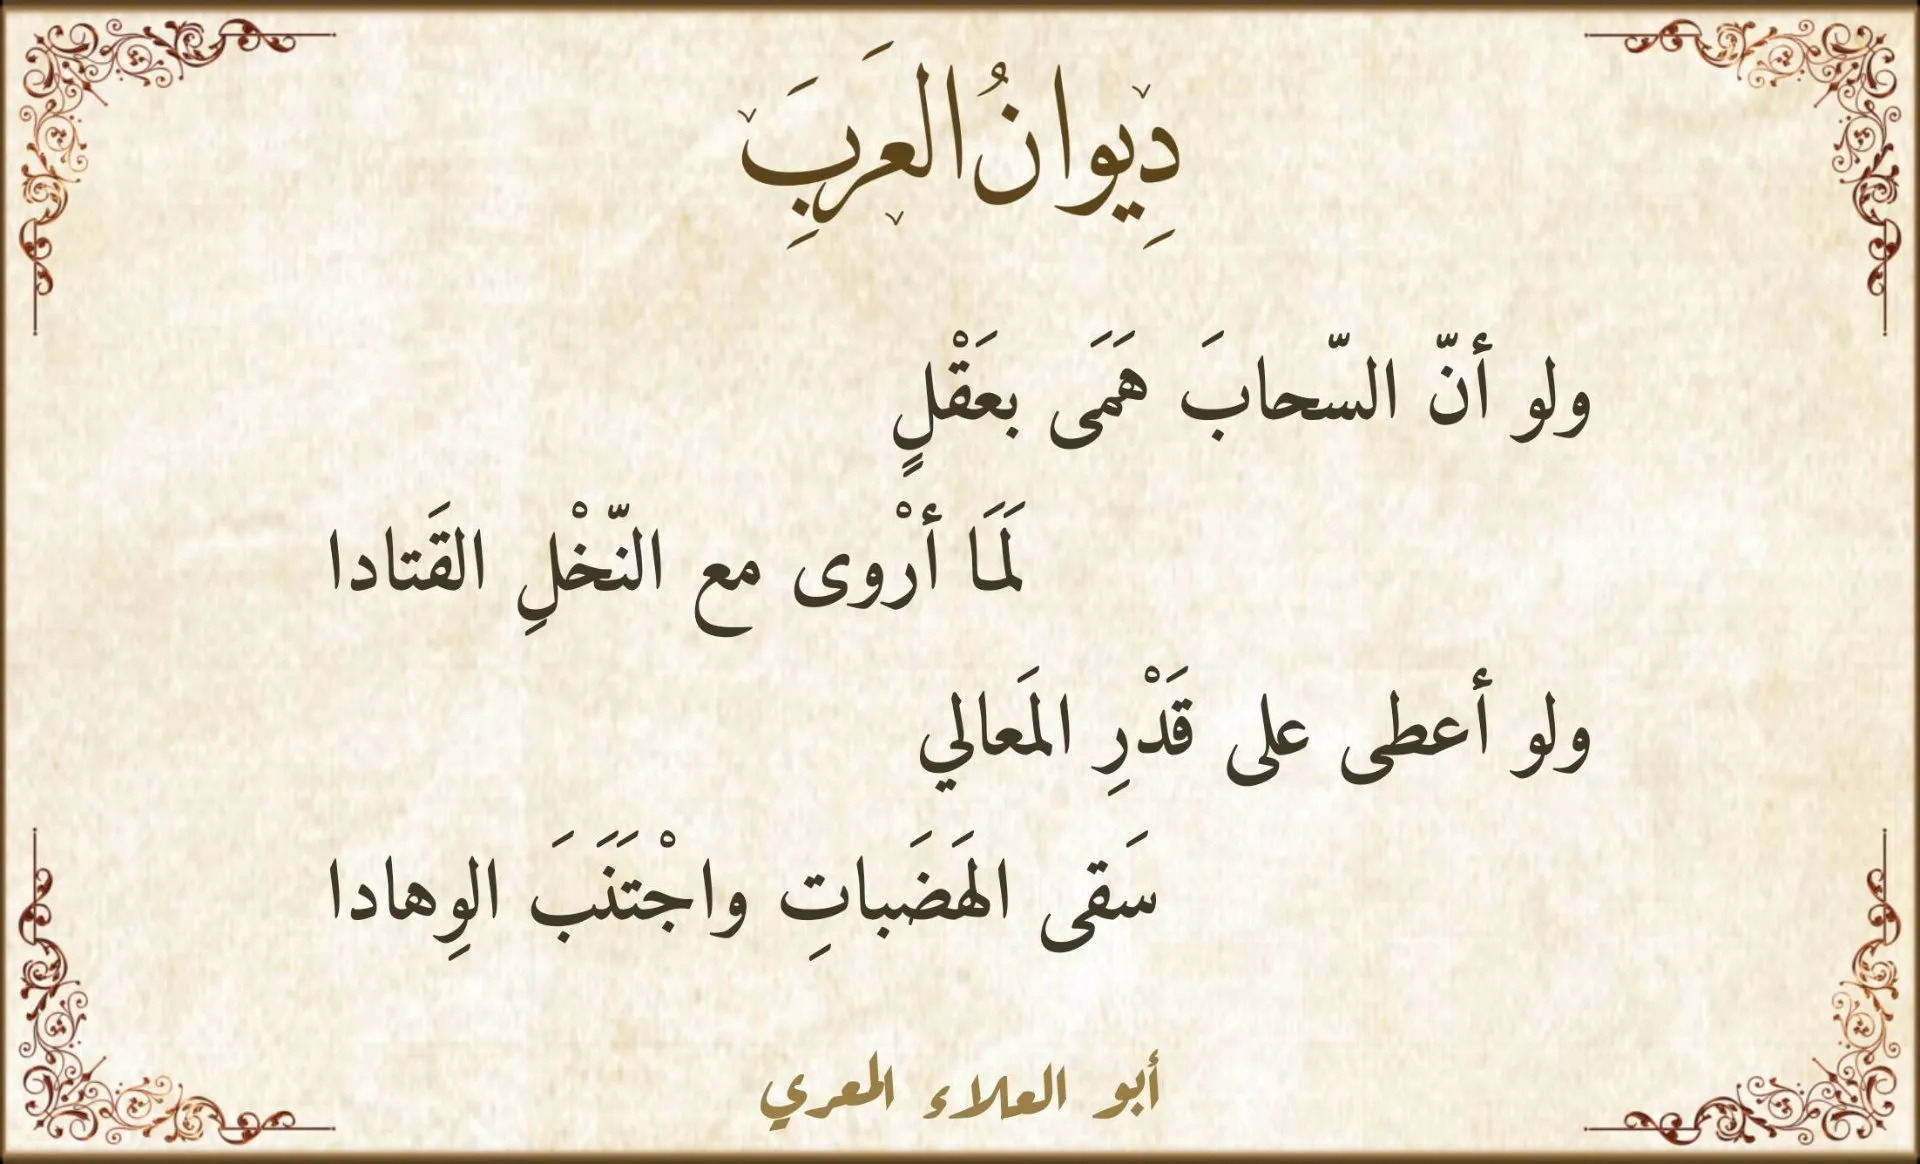 دِيوانُ العَرَبَِ
ولو أنّ السّحابَ هَمَى بعَقْلٍ
لَمَا أرْوى مع النّخْلِ القَتادا
ولو أعطى على قَدْرِ المَعالي
سَقى الهَضَباتِ واجْتَنَبَ الوِهادا
أبو العلاء المعري